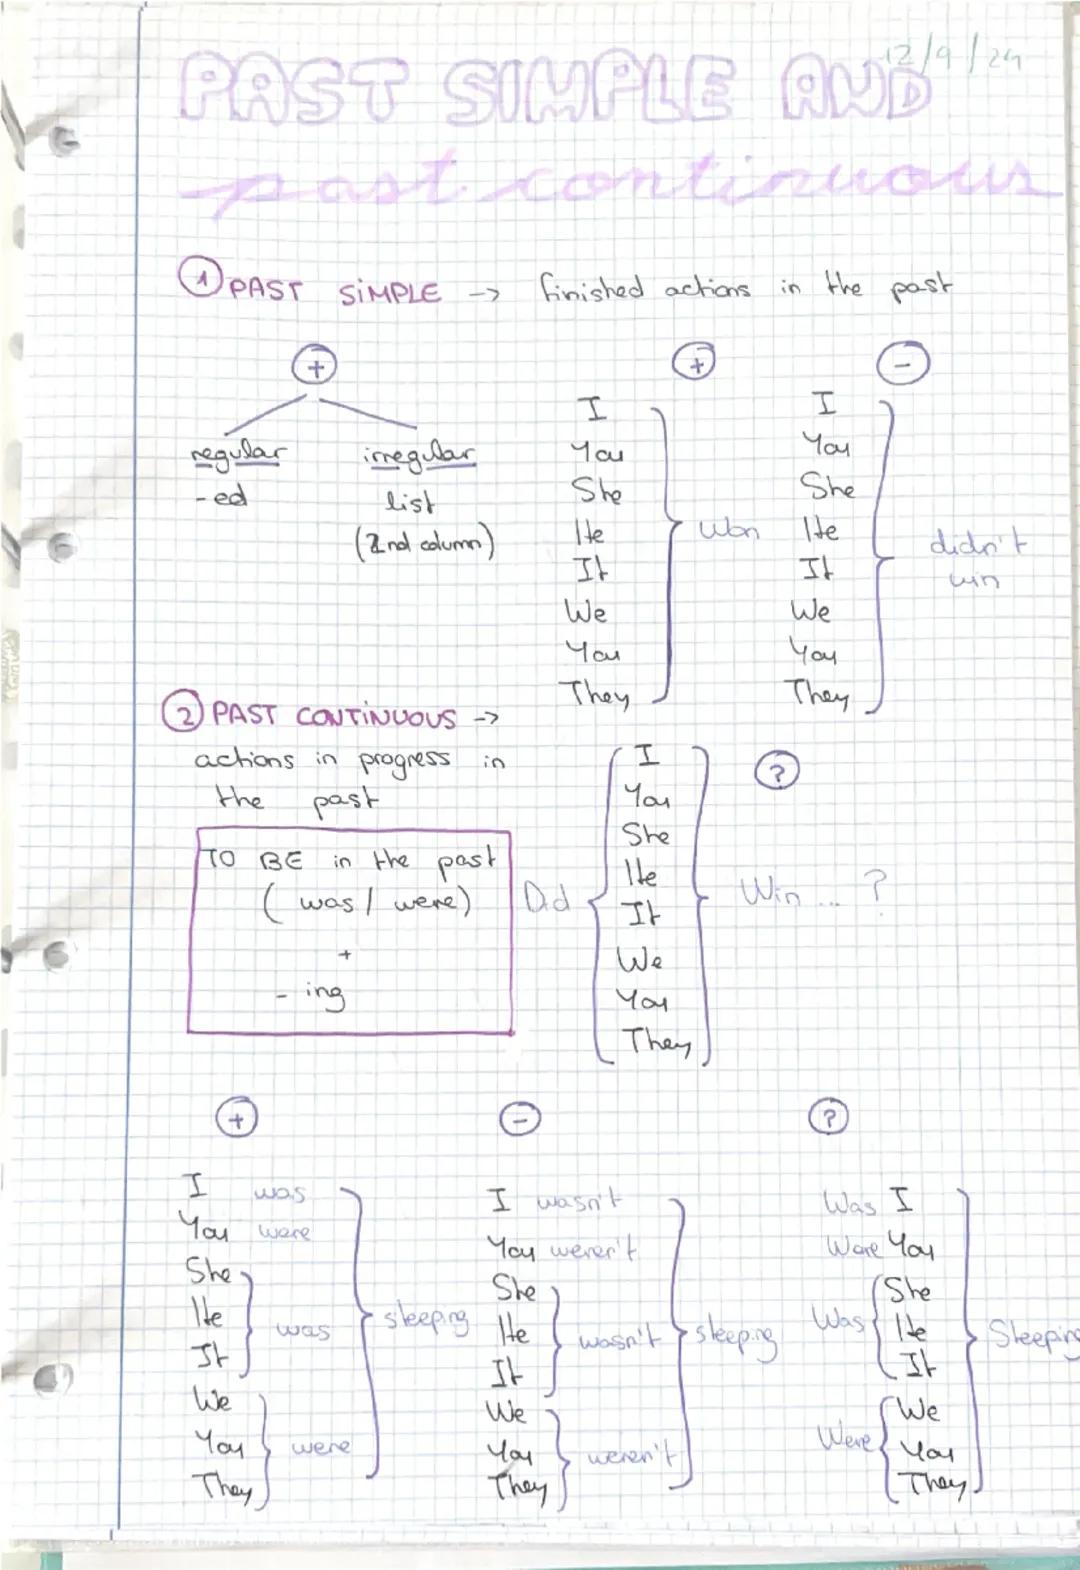 12/9/24
PAST SIMPLE AND
past continuous
1 PAST SIMPLE -> finished actions in the past
+
regular irregular
-ed list
(2nd column)
+
I
You
She
He
It
We
You
They
won
-
I
You
She
He
It
We
You
They
didn't
win
2 PAST CONTINUOUS ->
actions in progress in
the past
TO BE in the past
(was / were)
+
- ing
?
Did
I
You
She
He
It
We
You
They
Win ... ?
+
I was
You were
She
He
It
was
We
You
They
were
sleeping
-
I wasn't
You weren't
She
He
It
wasn't
We
You
They
weren't
sleeping
?
Was I
Were You
Was
She
He
It
Were
We
You
They
Sleeping